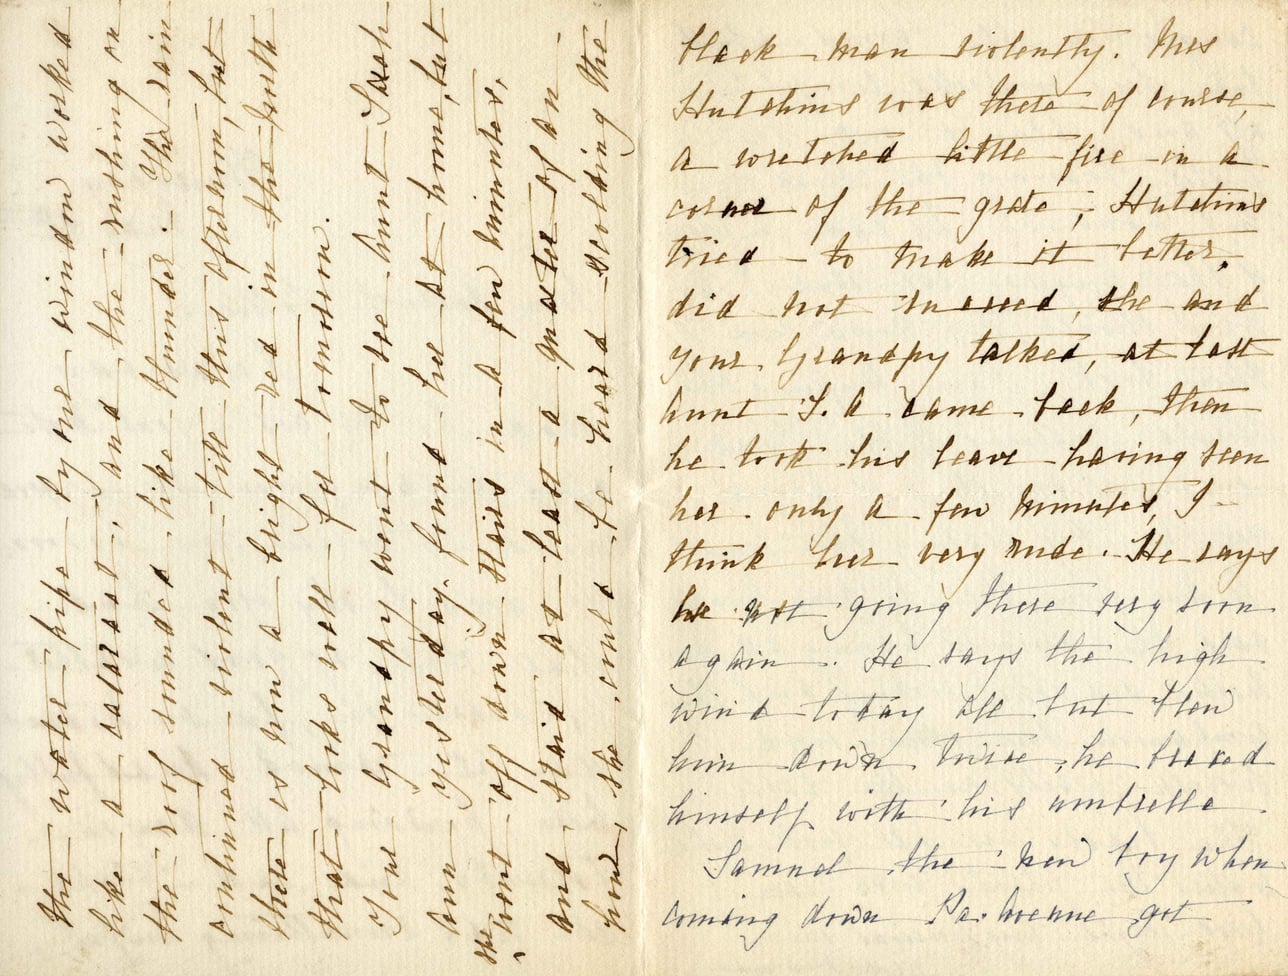 the water pipe by one window worked
like a cataract, and the rushing on
the roof sounded like thunder. The rain
continued violent till this afternoon, but
there is now a bright red in the north
that looks well for tomorrow.
Your Grandpy went to see Aunt Sarah
Ann yesterday, found her at home, but
she went off down stairs in a few minutes,
and staid at least a quarter of an
hour, she could be heard scolding the
black man violently. Mrs
Hutchins was there of course,
a wretched little fire in a
corner of the grate, Hutchins
tried to make it better,
did not succeed, she and
your Grandpy talked, at last
Aunt S. A came back, then
he took his leave having seen
her only a few minutes, I
think her very rude. He says
he not going there very soon
again. He says the high
wind today all but blew
him down twice, he braced
himself with his umbrella
Samuel the new boy when
coming down Pa. Avenue got